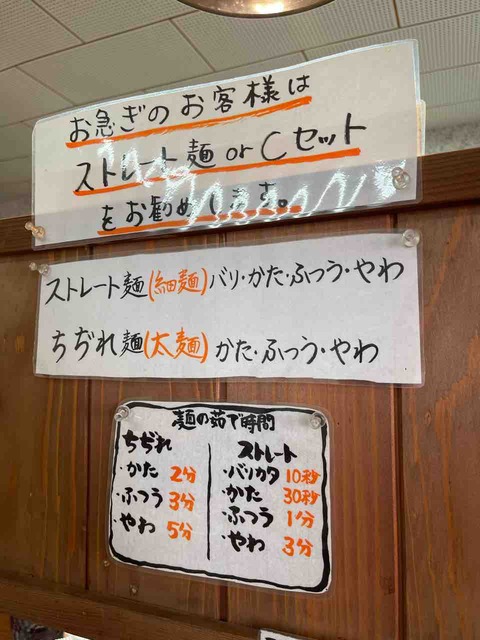 お急ぎのお客様は
ストレート麺 or Cセット
をお勧めします。
ストレート麺(細麺)バリ・かた・ふつう・やわ
ちぢれ麺(太麺)かた・ふつう・やわ
麺の茹で時間
ちぢれ
・かた 2分
・ふつう 3分
・やわ 5分
ストレート
・バリカタ 10秒
・かた 30秒
・ふつう 1分
・やわ 3分